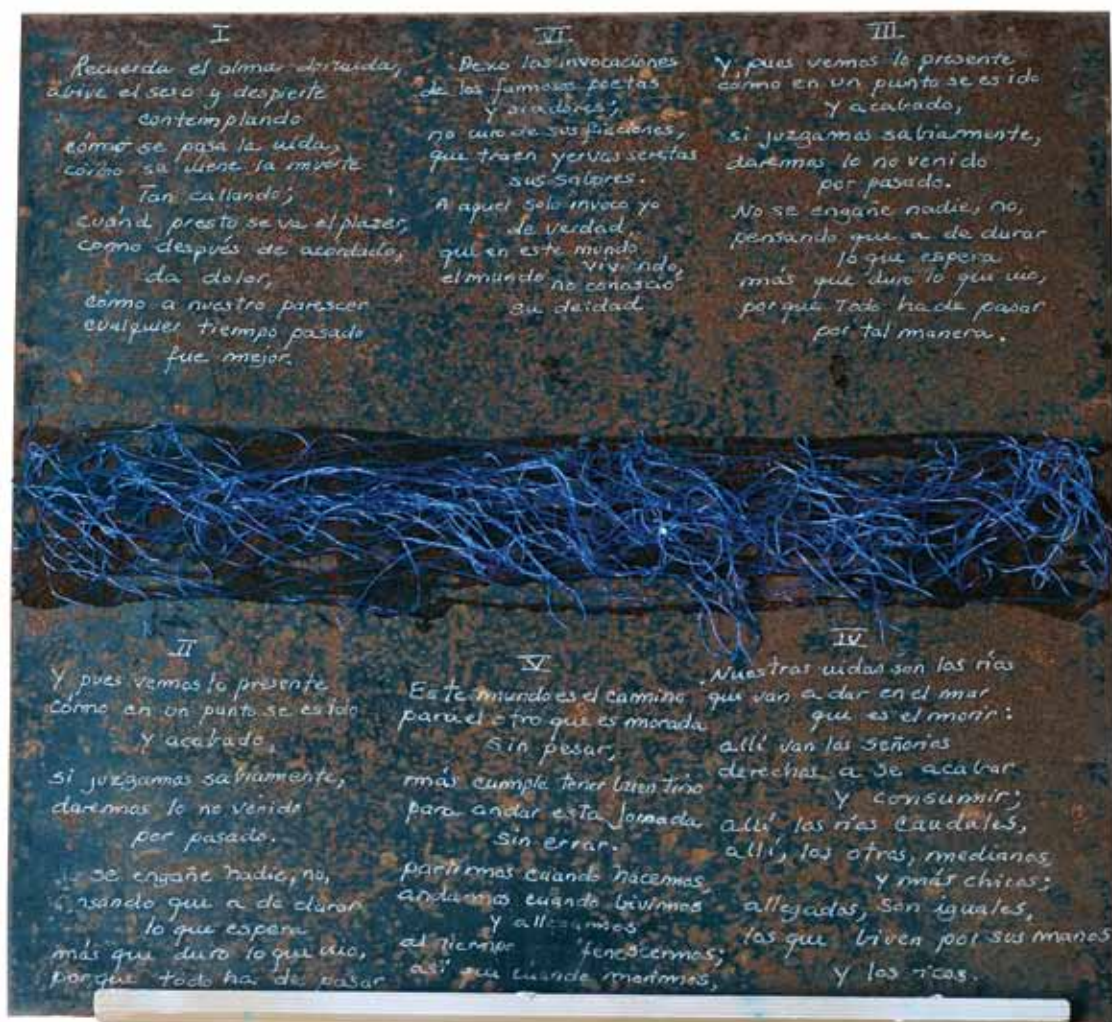 I
Recuerda el alma dormida,
abive el seso y despierte
contemplando
cómo se pasa la uida,
cómo se uiene la muerte
Tan callando;
cuánd presto se va el plazer,
cómo después de acordado,
da dolor,
cómo a nuestro parescer
cualquier tiempo pasado
fue mejor.
VI
Dexo las invocaciones
de los famosos poetas
y oradores;
no curo de sus ficciones,
que traen yervas secretas
sus sabores.
A aquel solo invoco yo
de verdad,
que en este mundo
viviendo,
el mundo no conoscio
su deidad
III
Y, pues vemos lo presente
cómo en un punto se es ido
y acabado,
si juzgamos sabiamente,
daremos lo no venido
por pasado.
No se engañe nadie, no,
pensando que a de durar
lo que espera
más que duró lo que uio,
porque Todo ha de pasar
por tal manera.
II
Y, pues vemos lo presente
cómo en un punto se es ido
y acabado,
si juzgamos sabiamente,
daremos lo no venido
por pasado.
se engañe nadie, no,
nsando que a de durar
lo que espera
más que duró lo que uio,
porque todo ha de pasar
V
Este mundo es el camino
para el otro que es morada
sin pesar,
más cumple tener buen tino
para andar esta jornada
sin errar.
partimos cuando nacemos,
andamos cuando bivimos
y allegamos
al tiempo fenescemos;
así que cuando morimos,
IV
Nuestras uidas son los ríos
que van a dar en el mar
que es el morir:
allí van los señoríos
derechos a se acabar
y consumir;
allí, los ríos caudales,
allí, los otros, medianos
y más chicos;
allegados, son iguales,
los que biven por sus manos
y los ricos.